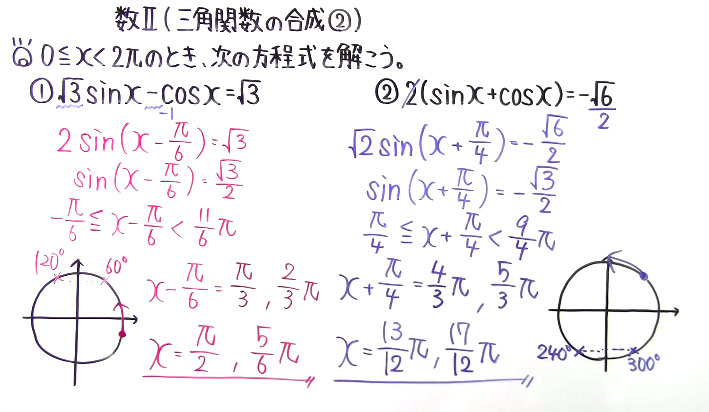 数Ⅱ(三角関数の合成②)
0≦x<2πのとき、次の方程式を解こう。
① √3sinx-cosx=√3
-1
2sin(x-π/6)=√3
sin(x-π/6)=√3/2
-π/6≦x-π/6<11/6π
120°
60°
x-π/6=π/3, 2/3π
x=π/2, 5/6π
② 2(sinx+cosx)=-√6/2
√2sin(x+π/4)=-√6/2
sin(x+π/4)=-√3/2
π/4≦x+π/4<9/4π
x+π/4=4/3π, 5/3π
x=13/12π, 17/12π
240°
300°